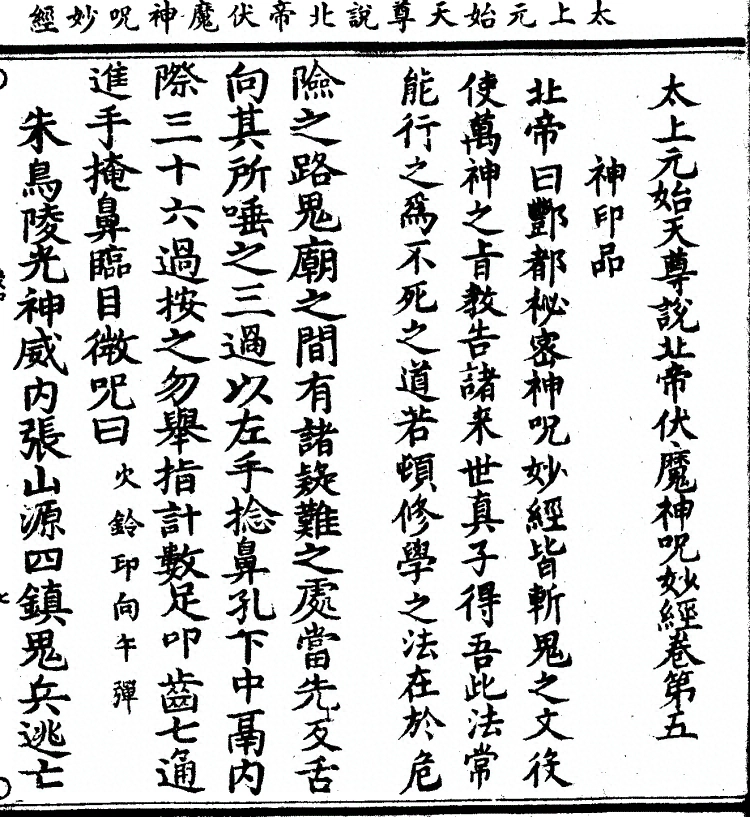 太上元始天尊說北帝伏魔神呪妙經
太上元始天尊說北帝伏魔神呪妙經卷第五
神印品
北帝曰酆都秘密神呪妙經皆斬鬼之文役
使萬神之旨教告諸來世真子得吾此法常
能行之為不死之道若頓修學之法在於危
險之路鬼廟之間有諸疑難之處當先反舌
向其所唾之三過以左手捻鼻孔下中鬲內
際三十六過按之勿舉指計數足叩齒七通
進手掩鼻臨目微呪曰火鈴印向午彈
朱鳥陵光神威內張山源四鎮鬼兵逃亡